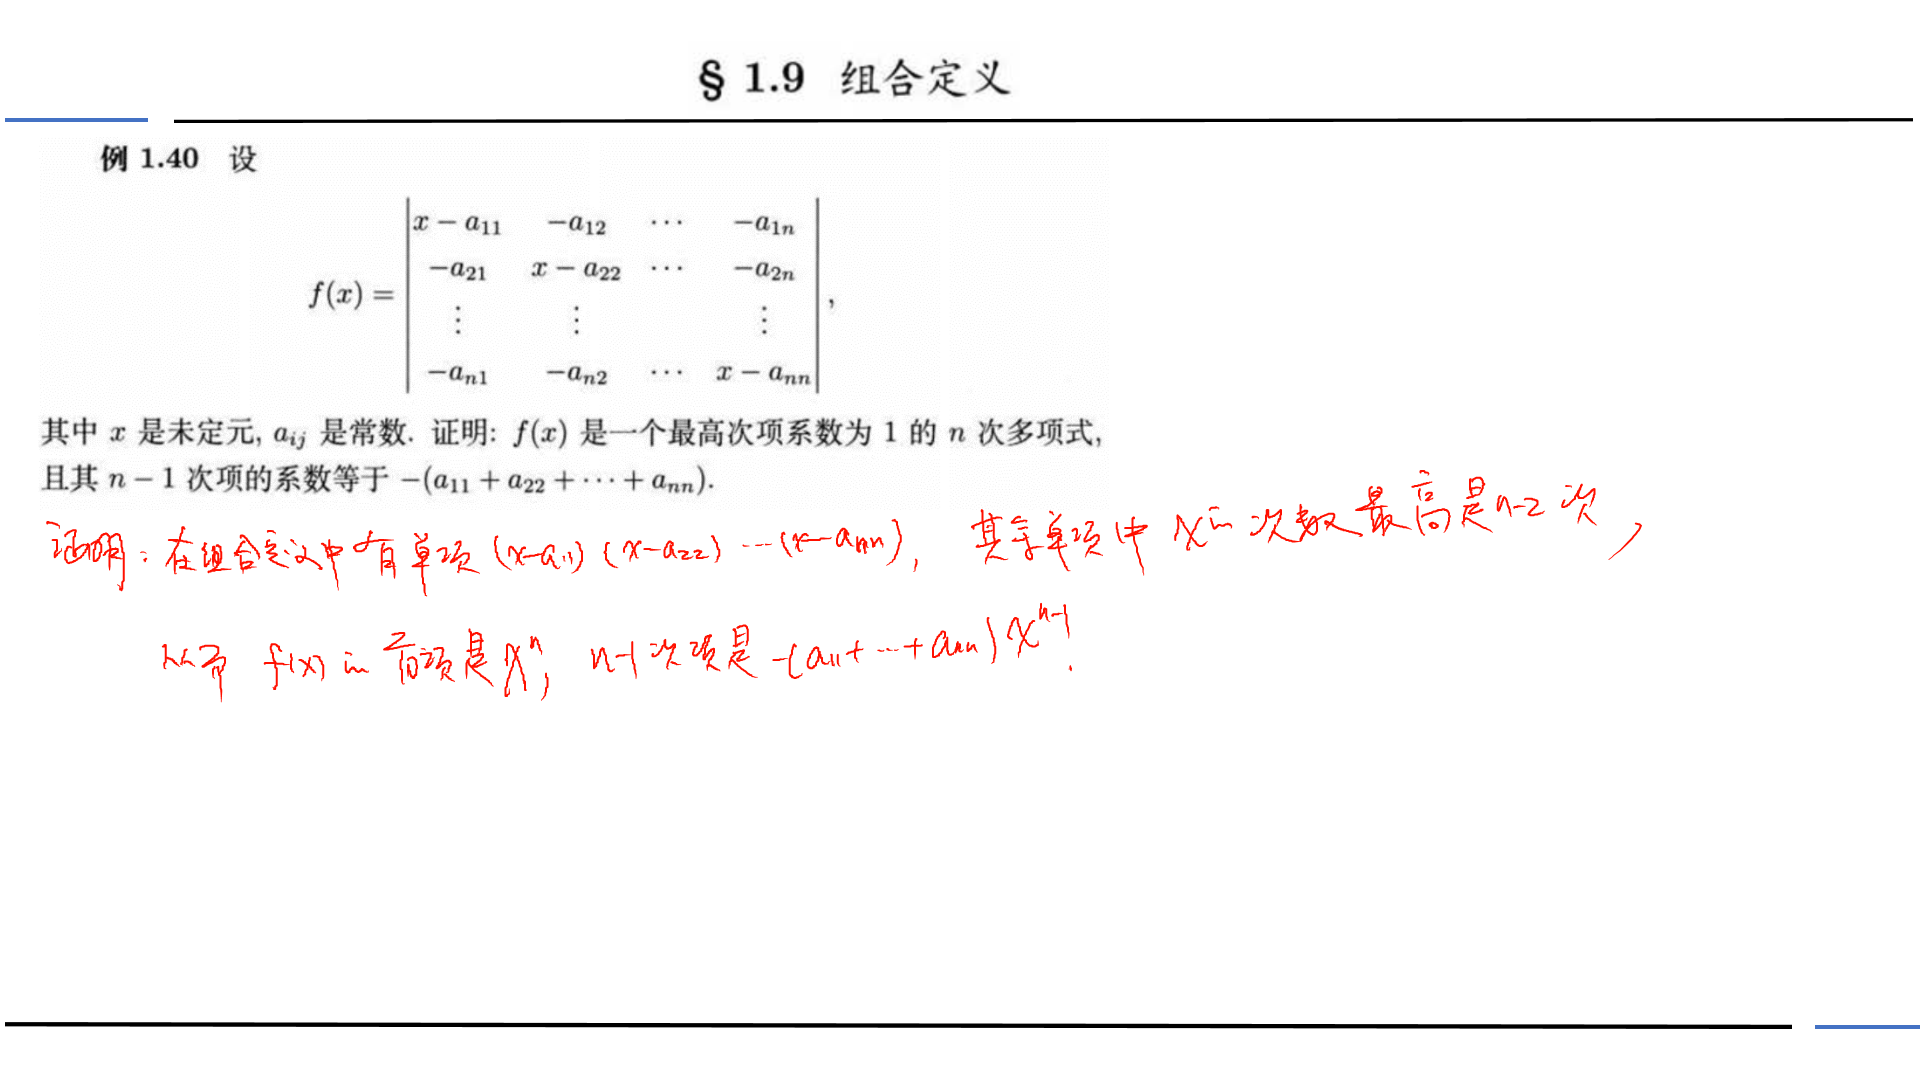 § 1.9 组合定义
例 1.40 设
f(x) = | x − a₁₁ −a₁₂ ⋯ −a₁ₙ |
| −a₂₁ x − a₂₂ ⋯ −a₂ₙ |
| ⋮ ⋮ ⋮ | ,
| −aₙ₁ −aₙ₂ ⋯ x − aₙₙ |
其中 x 是未定元, aᵢⱼ 是常数. 证明: f(x) 是一个最高次项系数为 1 的 n 次多项式,
且其 n − 1 次项的系数等于 −(a₁₁ + a₂₂ + ⋯ + aₙₙ).
证明: 在组合定义中有单项 (x−a₁₁)(x−a₂₂)⋯(x−aₙₙ), 其余单项中 x 的次数最高是 n−2 次,
从而 f(x) 的首项是 xⁿ, n−1 次项是 −(a₁₁+⋯+aₙₙ)xⁿ⁻¹.